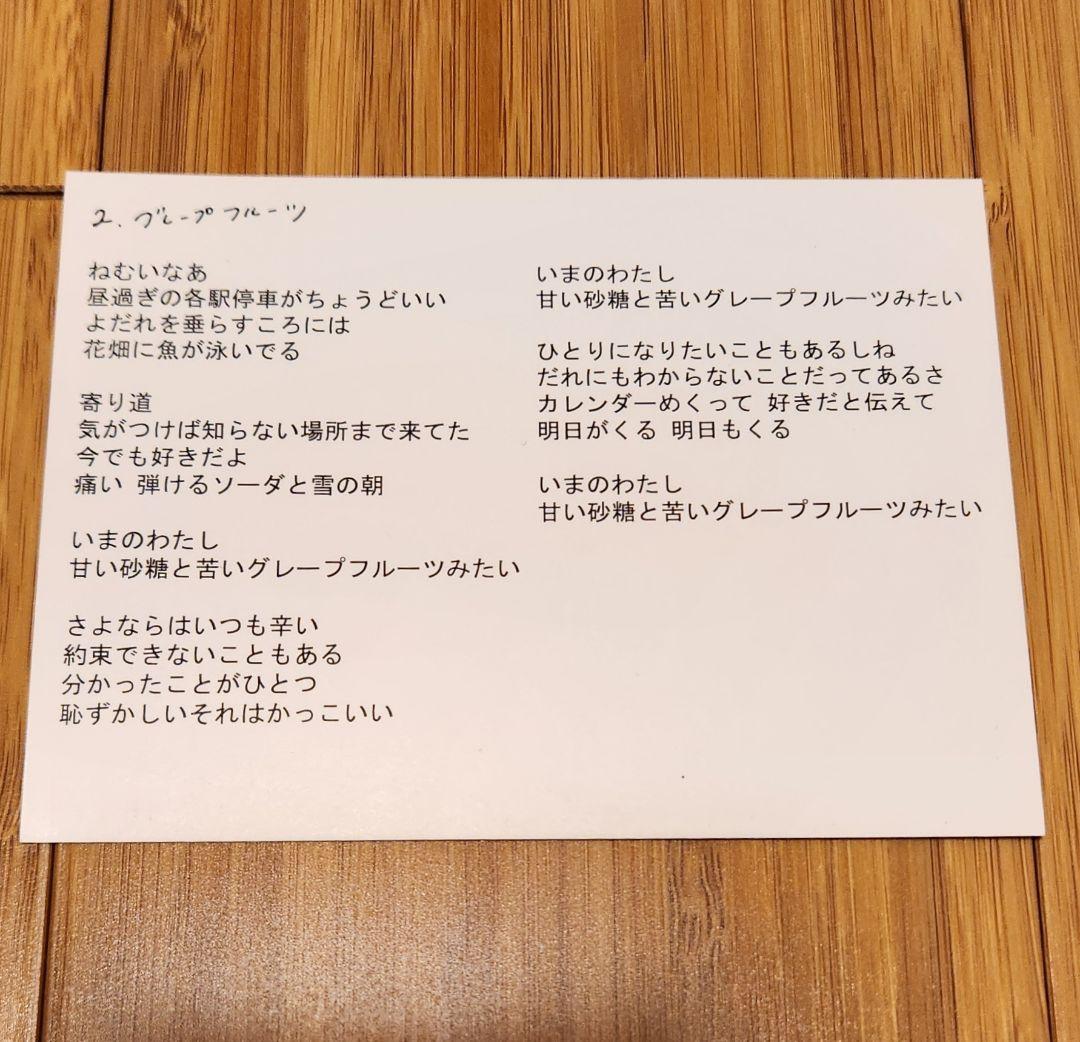 2. グレープフルーツ
ねむいなあ
昼過ぎの各駅停車がちょうどいい
よだれを垂らすころには
花畑に魚が泳いでる
寄り道
気がつけば知らない場所まで来てた
今でも好きだよ
痛い 弾けるソーダと雪の朝
いまのわたし
甘い砂糖と苦いグレープフルーツみたい
さよならはいつも辛い
約束できないこともある
分かったことがひとつ
恥ずかしいそれはかっこいい
いまのわたし
甘い砂糖と苦いグレープフルーツみたい
ひとりになりたいこともあるしね
だれにもわからないことだってあるさ
カレンダーめくって 好きだと伝えて
明日がくる 明日もくる
いまのわたし
甘い砂糖と苦いグレープフルーツみたい